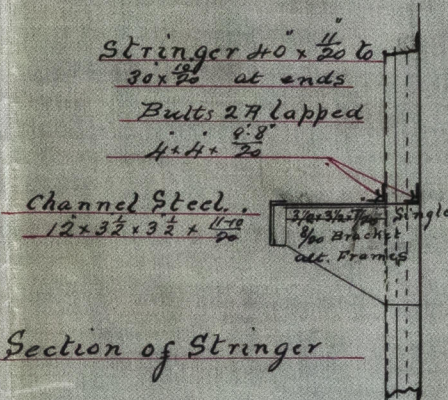 Stringer 40" x 11/20 to
30 x 10/20 at ends
Butts 2R lapped
4 x 4 x 9·8/20
Channel Steel.
12 x 3½ x 3½ x 11-10/20
Single
8/20 Bracket
alt. Frames
Section of Stringer